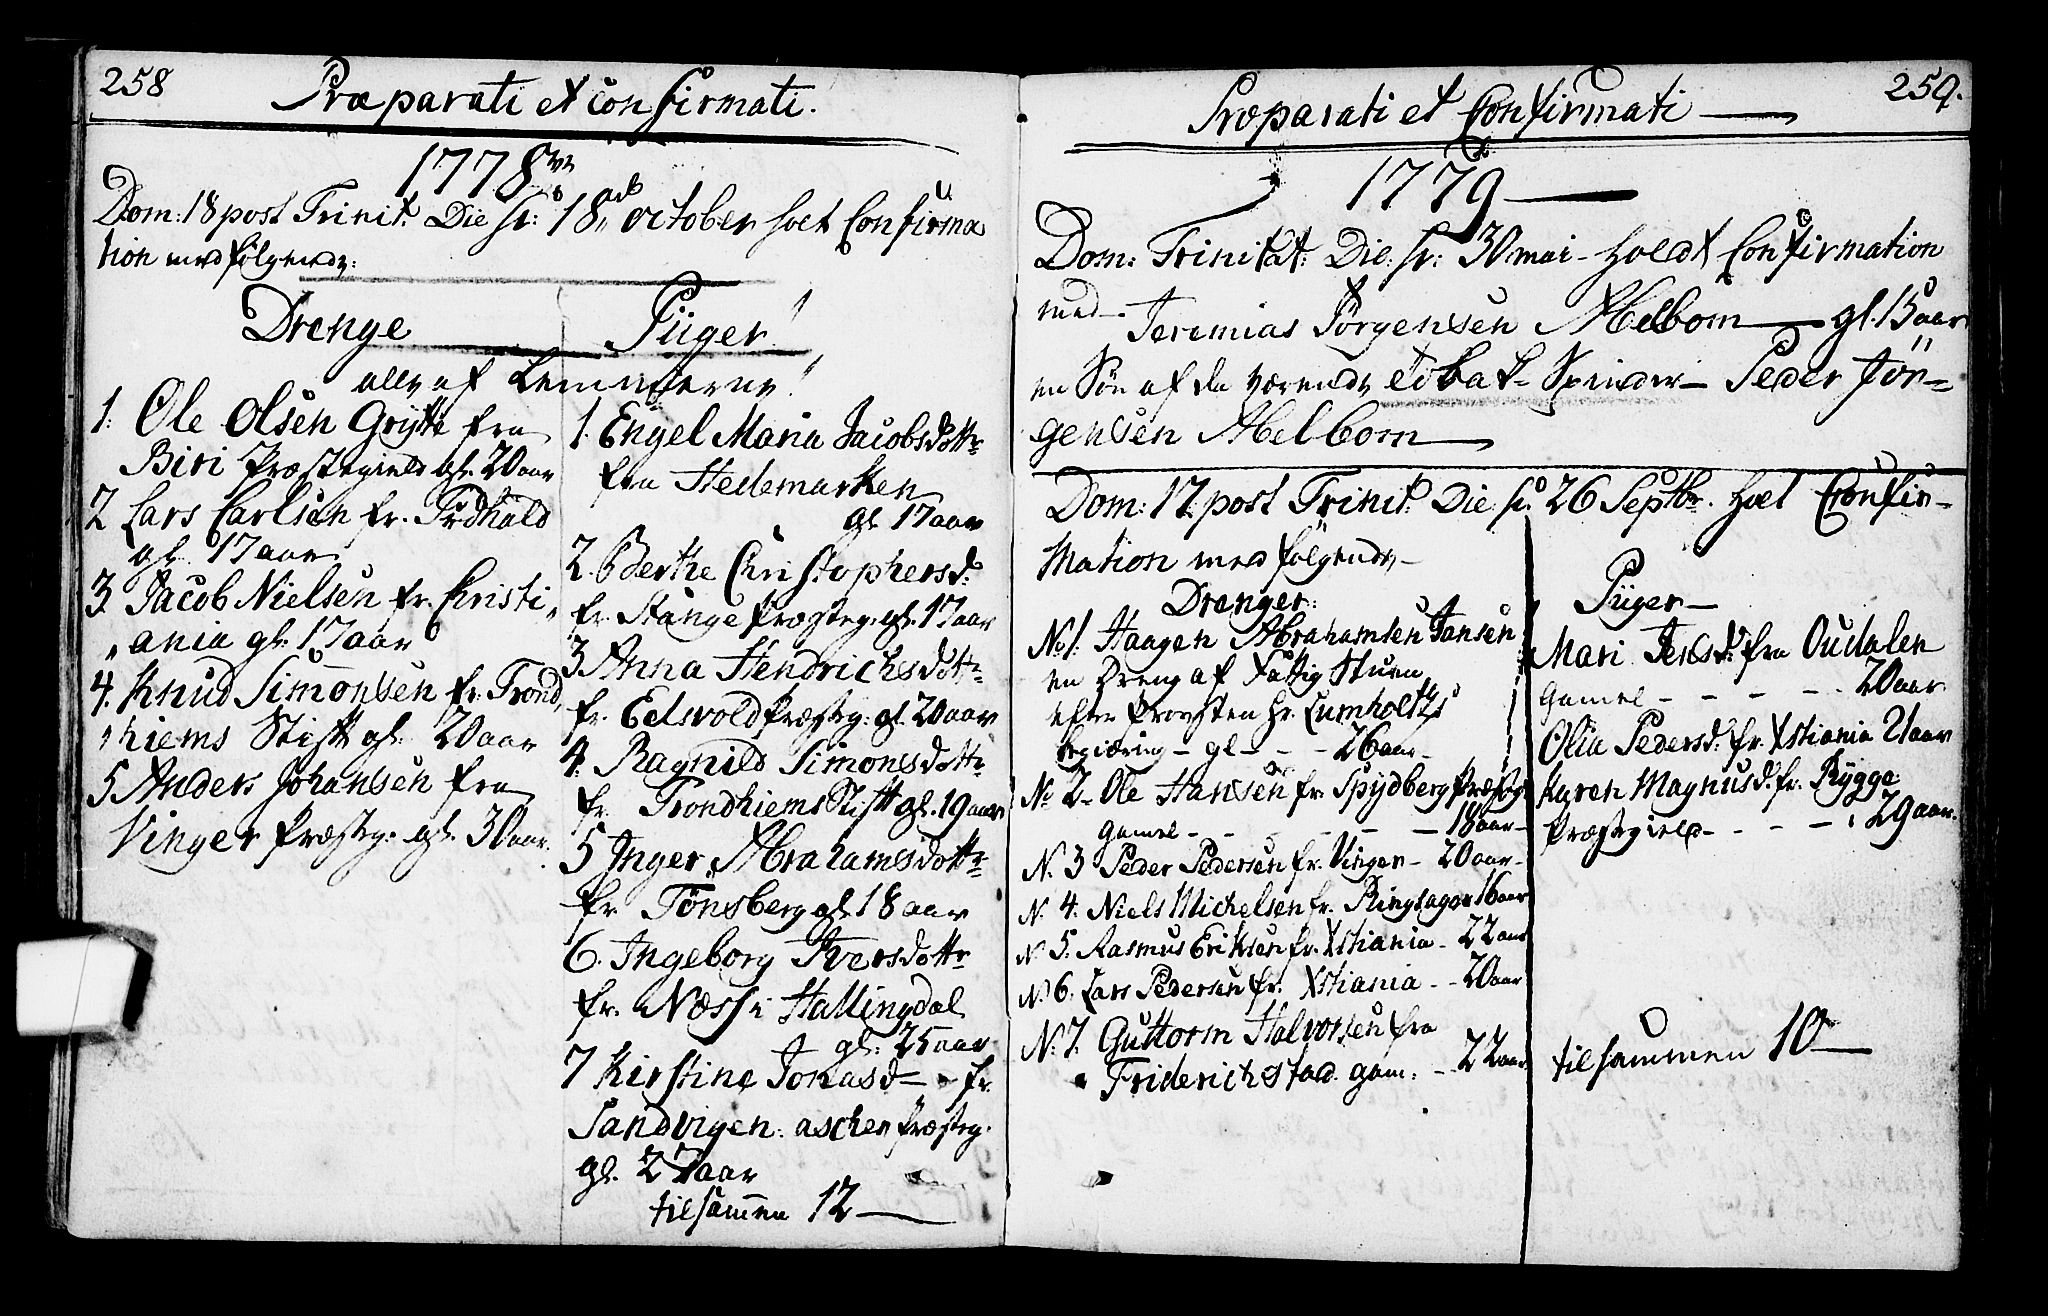 258
Præparati et confirmati.
1778
Dom: 18 post Trinit. Die st: 18 october holt Confirma
tion med følgende:
Drenge
alle af Lemmerne
1. Ole Olsen Grytte fra
Biri Præstegield gl. 20 aar
2 Lars Carlsen fr. Fridhald
gl. 17 aar
3. Jacob Nielsen fr. Christi
ania gl. 17 aar
4. Knud Simonsen fr. Trond,
hiems Stift gl. 20 aar
5 Anders Johansen fra
Vinger Præsteg. gl. 30 aar.
Piiger
1. Engel Maria Jacobsdottr
fra Hedemarken
gl. 17 aar
2. Berthe Christophersd.
fr. Stange Præsteg. gl. 17 aar
3 Anna Hendrichsdottr
fr. Eidsvold Præsteg: gl. 20 aar
4. Ragnild Simonsdottr
fr. Trondhiems Stift gl. 19 aar
5 Inger Abrahamsdottr
fr. Tönsberg gl. 18 aar
6. Ingeborg Iversdottr
fr. Næss i Hallingdal
gl: 25 aar
7 Kirstine Jonasd - fr.
Sandvigen: ascher Præsteg.
gl. 27 aar
tilsammen 12
259.
Præparati et Confirmati
1779
Dom: Trinitat: Die: st: 30 mai - holdt Confirmation
med
Jeremias Jörgensen Melbom gl. 15 aar
en Sön af da værende Tobak-Spinder Peder Jör-
gensen Melbom
Dom: 17 post Trinit. Die st. 26 Septbr. holt Confir-
mation med følgende,
Drenger:
No 1. Haagen Abrahamsen Jansen
en Dreng af Fattig Stuen
efter Provsten Hr. Lumholtz's
begiæring - gl - - - 26 aar
No 2. Ole Hansen fr. Spydberg Præsteg
gamel - - - - - - 18 aar
N. 3 Peder Pedersen fr. Vinger - 20 aar
N. 4. Niels Michelsen fr. Ringsager 16 aar
N. 5. Rasmus Eriksen fr. Xstiania - 22 aar
N. 6. Lars Pedersen fr. Xstiania - - 20 aar
N. 7. Guttorm Halvorsen fra
Friderichstad gam: - - 22 aar
Piiger
Mari Jensd: fra Oudalen
Gamel - - - - - 20 aar
Olia Pedersd. fr. Xstiania 21 aar
Karen Magnusd. fr. Rygge
Præstegield - - - - 29 aar.
tilsammen 10